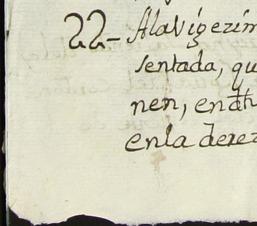 22- Ala Vigezim
sentada, qu
nen, en dh
en la derez